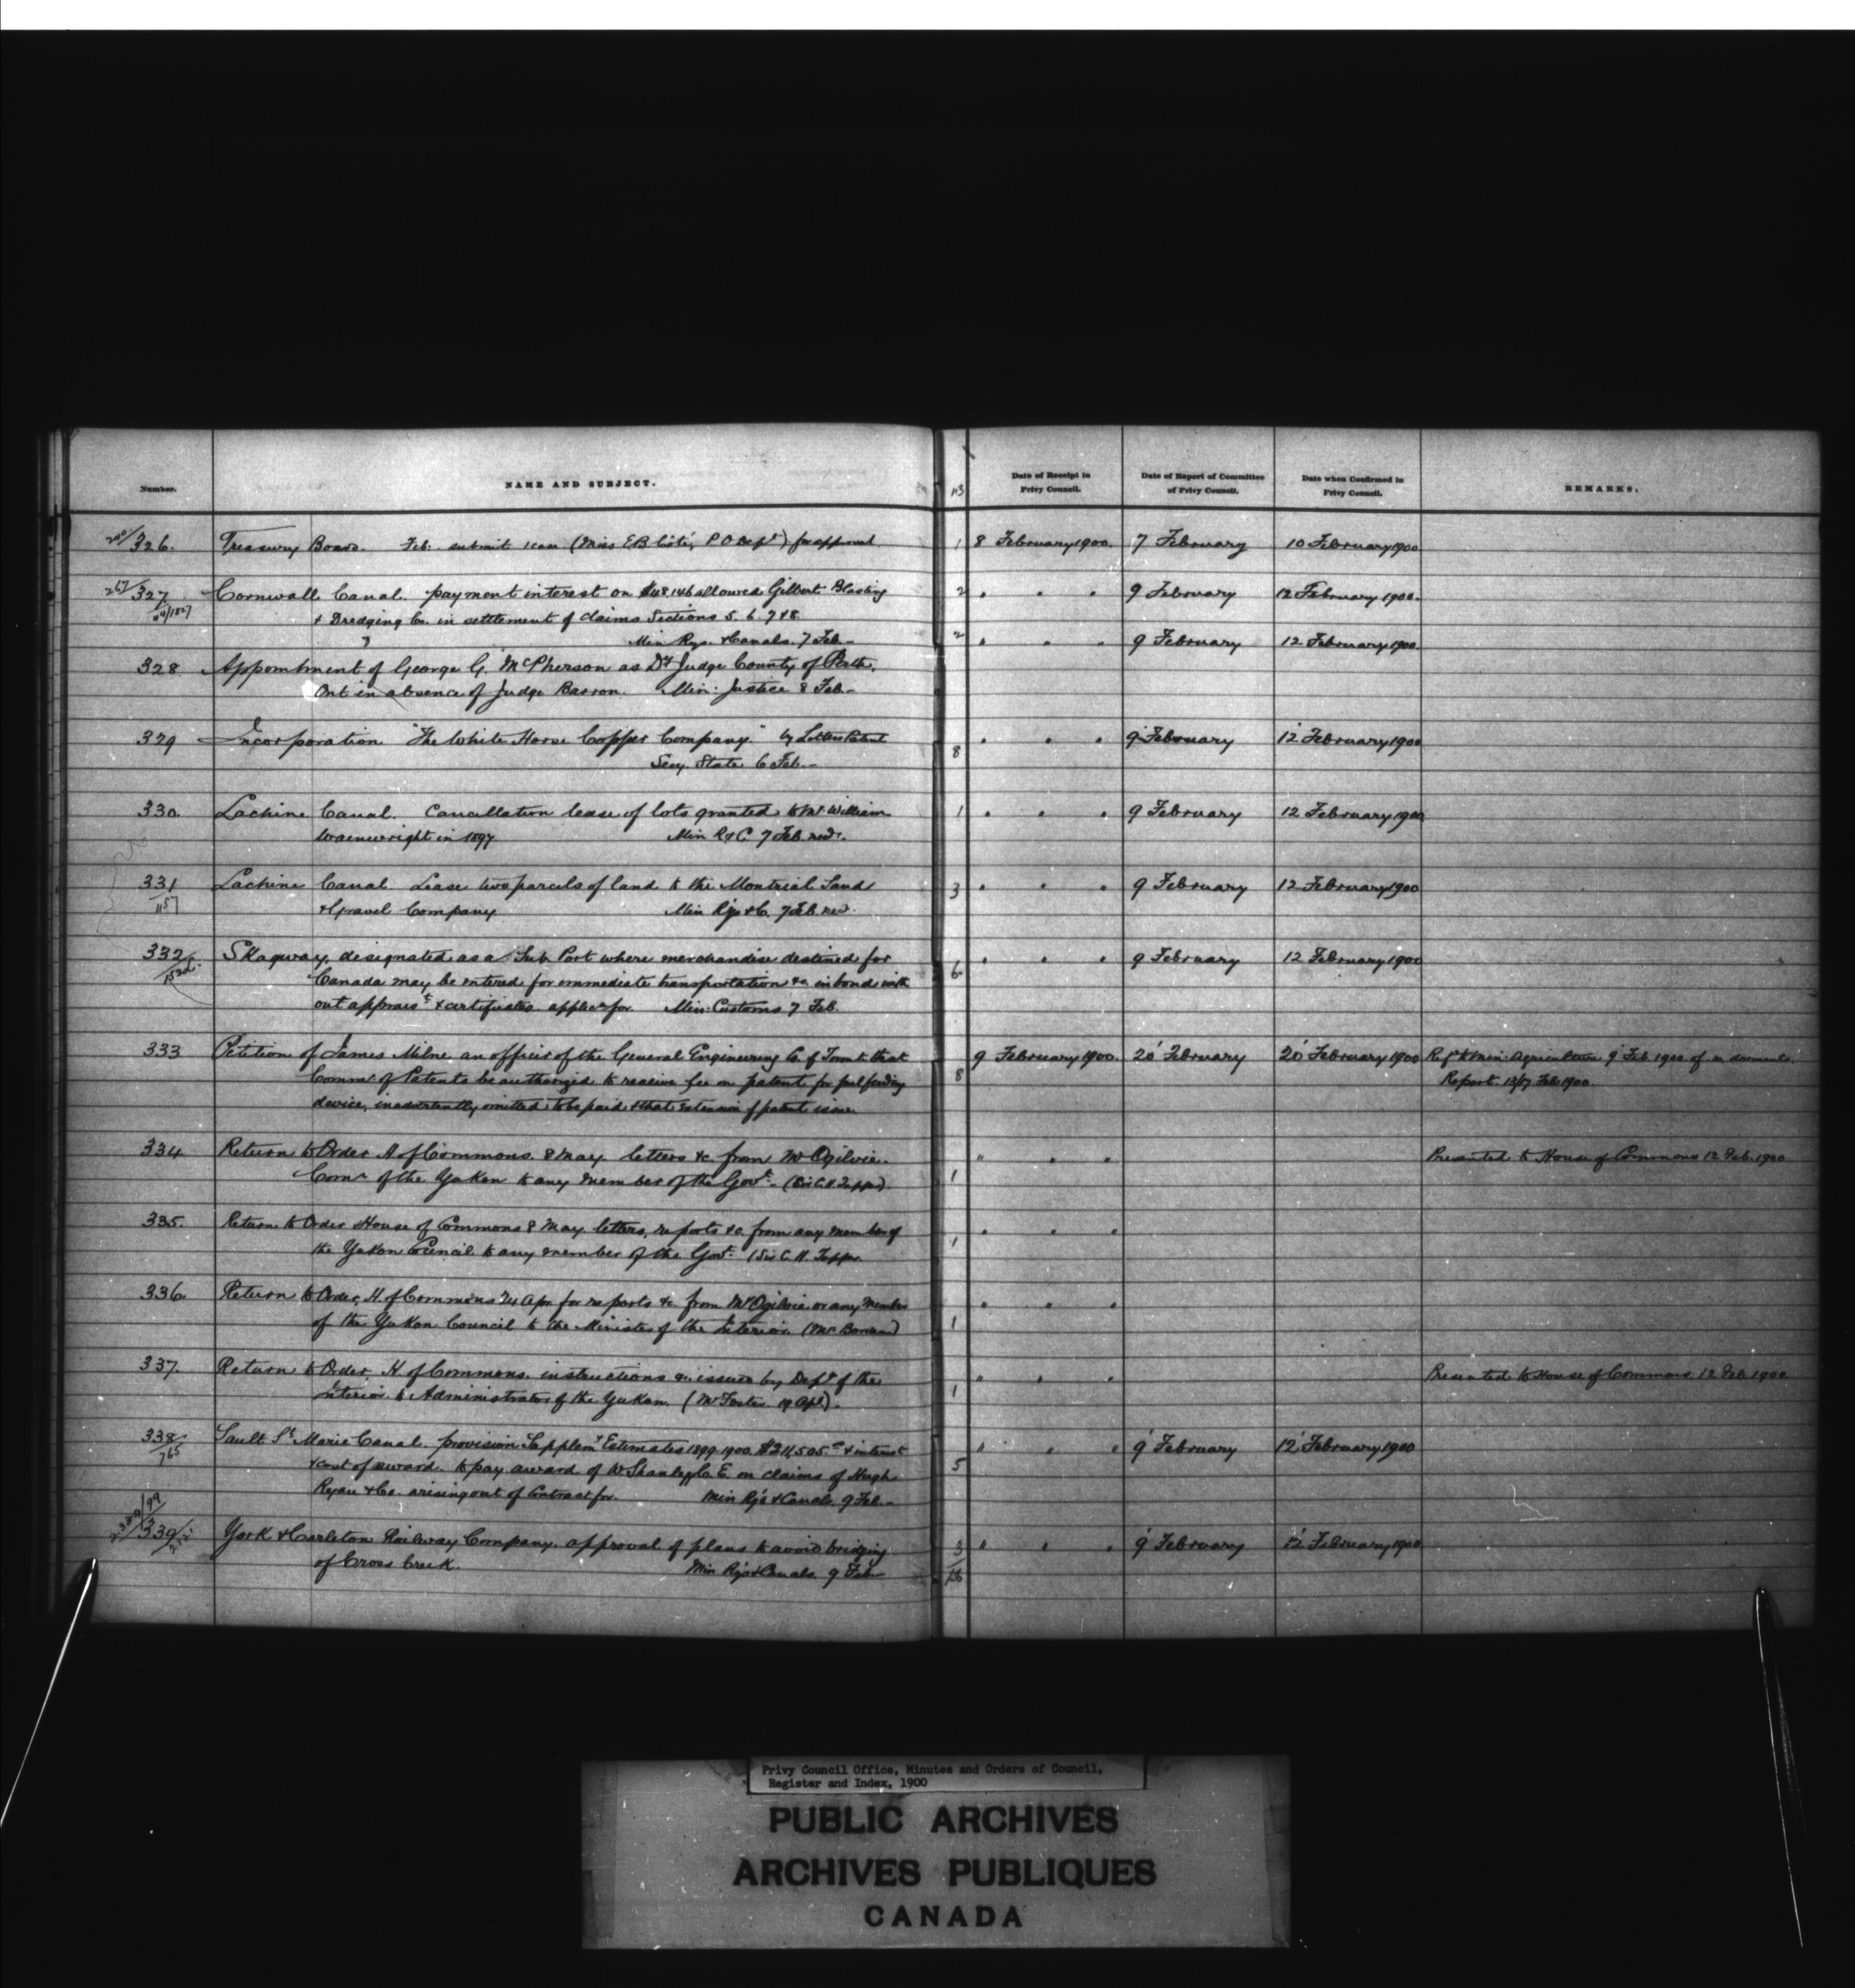 Number.
NAME AND SUBJECT.
113
Date of Receipt in
Privy Council.
Date of Report of Committee
of Privy Council.
Date when Confirmed in
Privy Council.
REMARKS.
326. Treasury Board. Feb. submit (Miss E B Coté, P O Dept) for approval 1 8 February 1900. 7 February 10 February 1900
327 Cornwall Canal. payment interest on $48146 allowed Gilbert Blasting 2 " " " 9 February 12 February 1900.
& Dredging Co. in settlement of claims Sections 5. 6. 7 & 8.
Min Rys. & Canals. 7 Feb. 2 " " " 9 February 12 February 1900.
328 Appointment of George G. McPherson as Dy Judge County of Perth.
Ont in absence of Judge Barron. Min: Justice 8 Feb.
329 Incorporation "The White Horse Copper Company." by Letters Patent 8 " " " 9 February 12 February 1900
Secy. State 6 Feb.
330. Lachine Canal. Cancellation lease of lots granted to Mr. William 1 " " " 9 February 12 February 1900
Wainwright in 1897 Min R & C 7 Feb. recd.
331 Lachine Canal. Lease two parcels of land to the Montreal Sand 3 " " " 9 February 12 February 1900
1157
& Gravel Company Min Rys & C. 7 Feb. recd.
332 Skagway, designated as a Sub Port where merchandise destined for 6 " " " 9 February 12 February 1900
Canada may be entered for immediate transportation &c in bond with
out appraist & certificates applicn for. Min: Customs 7 Feb.
333 Petition of James Milne an officer of the General Engineering Co. of Toronto that 9 February 1900. 20 February 20 February 1900 Refd to Min: Agriculture 9 Feb. 1900
Commr of Patents be authorized to receive fee on patent for fuel feeding 8 Report. 13/17 Feb 1900
device, inadvertently omitted to be paid & that extension of patent issue
334 Return to Order H of Commons. 8 May letters &c. from Mr Ogilvie. " " " Presented to House of Commons 12 Feb. 1900
Comr of the Yukon to any member of the Govt. (Sir C. H. Tupper). 1
335. Return to Order House of Commons 8 May letters, reports &c. from any member of " " "
the Yukon Council to any member of the Govt. (Sir C. H. Tupper. 1
336. Return to Order, H. of Commons 24 Apr for reports &c. from Mr Ogilvie or any member " " "
of the Yukon Council to the Minister of the Interior. 1
337. Return to Order, H of Commons. instructions &c. issued by Dept of the " " " Presented to House of Commons 12 Feb. 1900
Interior to Administrator of the Yukon. (Mr Foster 19 Apl). 1
338 Sault St. Marie Canal. provision Supplemy Estimates 1899-1900. $211,505. & interest " " " 9 February 12 February 1900
765
& cost of award. to pay award of W Shanly C. E. on claims of Hugh 5
Ryan & Co. arising out of Contract for. Min Rys & Canals. 9 Feb.
339 York & Carleton Railway Company. approval of plans to avoid bridging 3 " " " 9 February 12 February 1900
of Cross Creek. Min Rys & Canals. 9 Feb
Privy Council Office, Minutes and Orders of Council,
Register and Index, 1900
PUBLIC ARCHIVES
ARCHIVES PUBLIQUES
CANADA